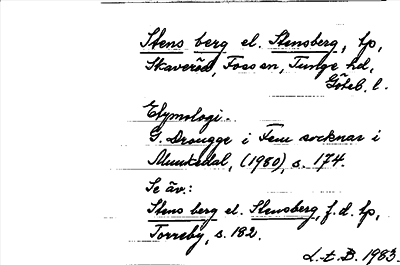 Stens berg el. Stensberg, tp,
Skaveröd, Foss sn, Tunge hd,
Göteb. l.
Etymologi.
G. Drougge i Fem socknar i
Munkedal, (1980), s. 174.
Se äv.:
Stens berg el. Stensberg, f.d. tp,
Torreby, s. 182.
L.t.B. 1983.